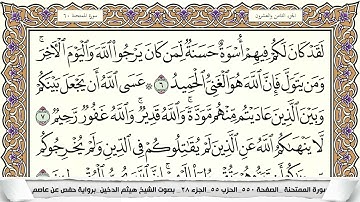 الجزء الثامن والعشرون سورة الممتحنة ٦٠
لَقَدْ كَانَ لَكُمْ فِيهِمْ أُسْوَةٌ حَسَنَةٌ لِّمَن كَانَ يَرْجُوا۟ ٱللَّهَ وَٱلْيَوْمَ ٱلْـَٔاخِرَ ۚ
وَمَن يَتَوَلَّ فَإِنَّ ٱللَّهَ هُوَ ٱلْغَنِىُّ ٱلْحَمِيدُ ٦ ۞ عَسَى ٱللَّهُ أَن يَجْعَلَ بَيْنَكُمْ
وَبَيْنَ ٱلَّذِينَ عَادَيْتُم مِّنْهُم مَّوَدَّةً ۚ وَٱللَّهُ قَدِيرٌ ۚ وَٱللَّهُ غَفُورٌ رَّحِيمٌ ٧
لَّا يَنْهَىٰكُمُ ٱللَّهُ عَنِ ٱلَّذِينَ لَمْ يُقَٰتِلُوكُمْ فِى ٱلدِّينِ وَلَمْ يُخْرِجُوكُم
سورة الممتحنة_الصفحة ٥٥٠_الحزب ٥٥_الجزء ٢٨_ بصوت الشيخ هيثم الدخين _برواية حفص عن عاصم